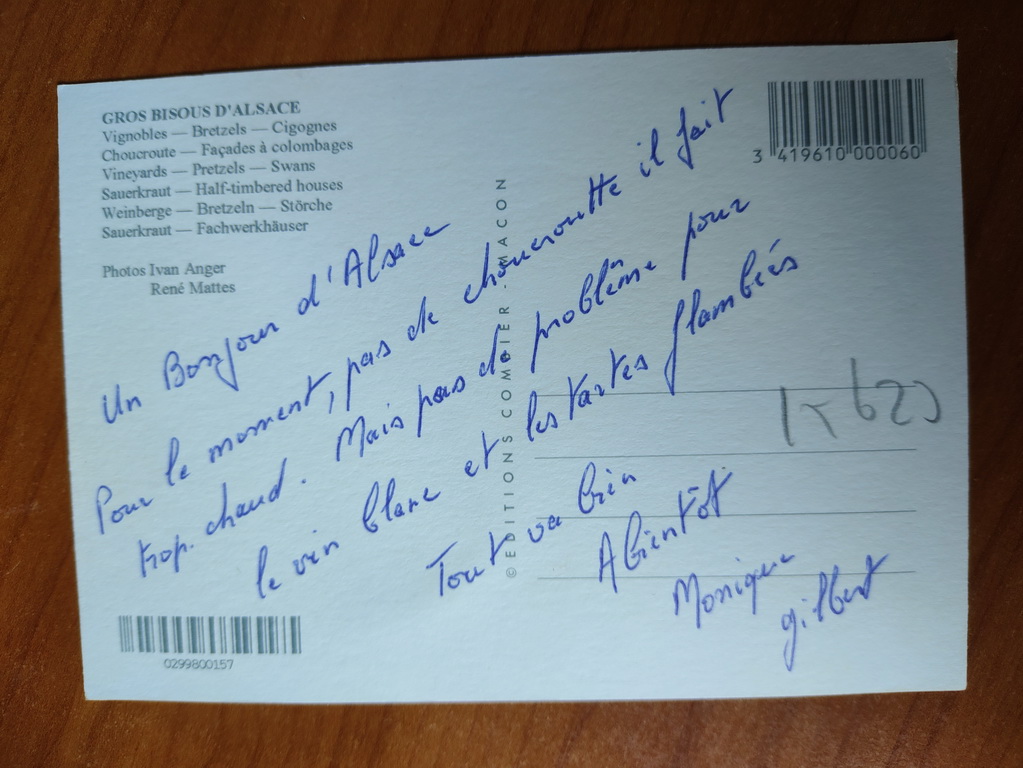 GROS BISOUS D'ALSACE
Vignobles — Bretzels — Cigognes
Choucroute — Façades à colombages
Vineyards — Pretzels — Swans
Sauerkraut — Half-timbered houses
Weinberge — Bretzeln — Störche
Sauerkraut — Fachwerkhäuser
Photos Ivan Anger
René Mattes
3 419610 000060
©EDITIONS COMBIER - MACON
Un Bonjour d'Alsace
Pour le moment, pas de choucroutte il fait
trop chaud. Mais pas de problème pour
le vin blanc et les tartes flambées
Tout va bien
A bientôt
Monique
gilbert
0299800157